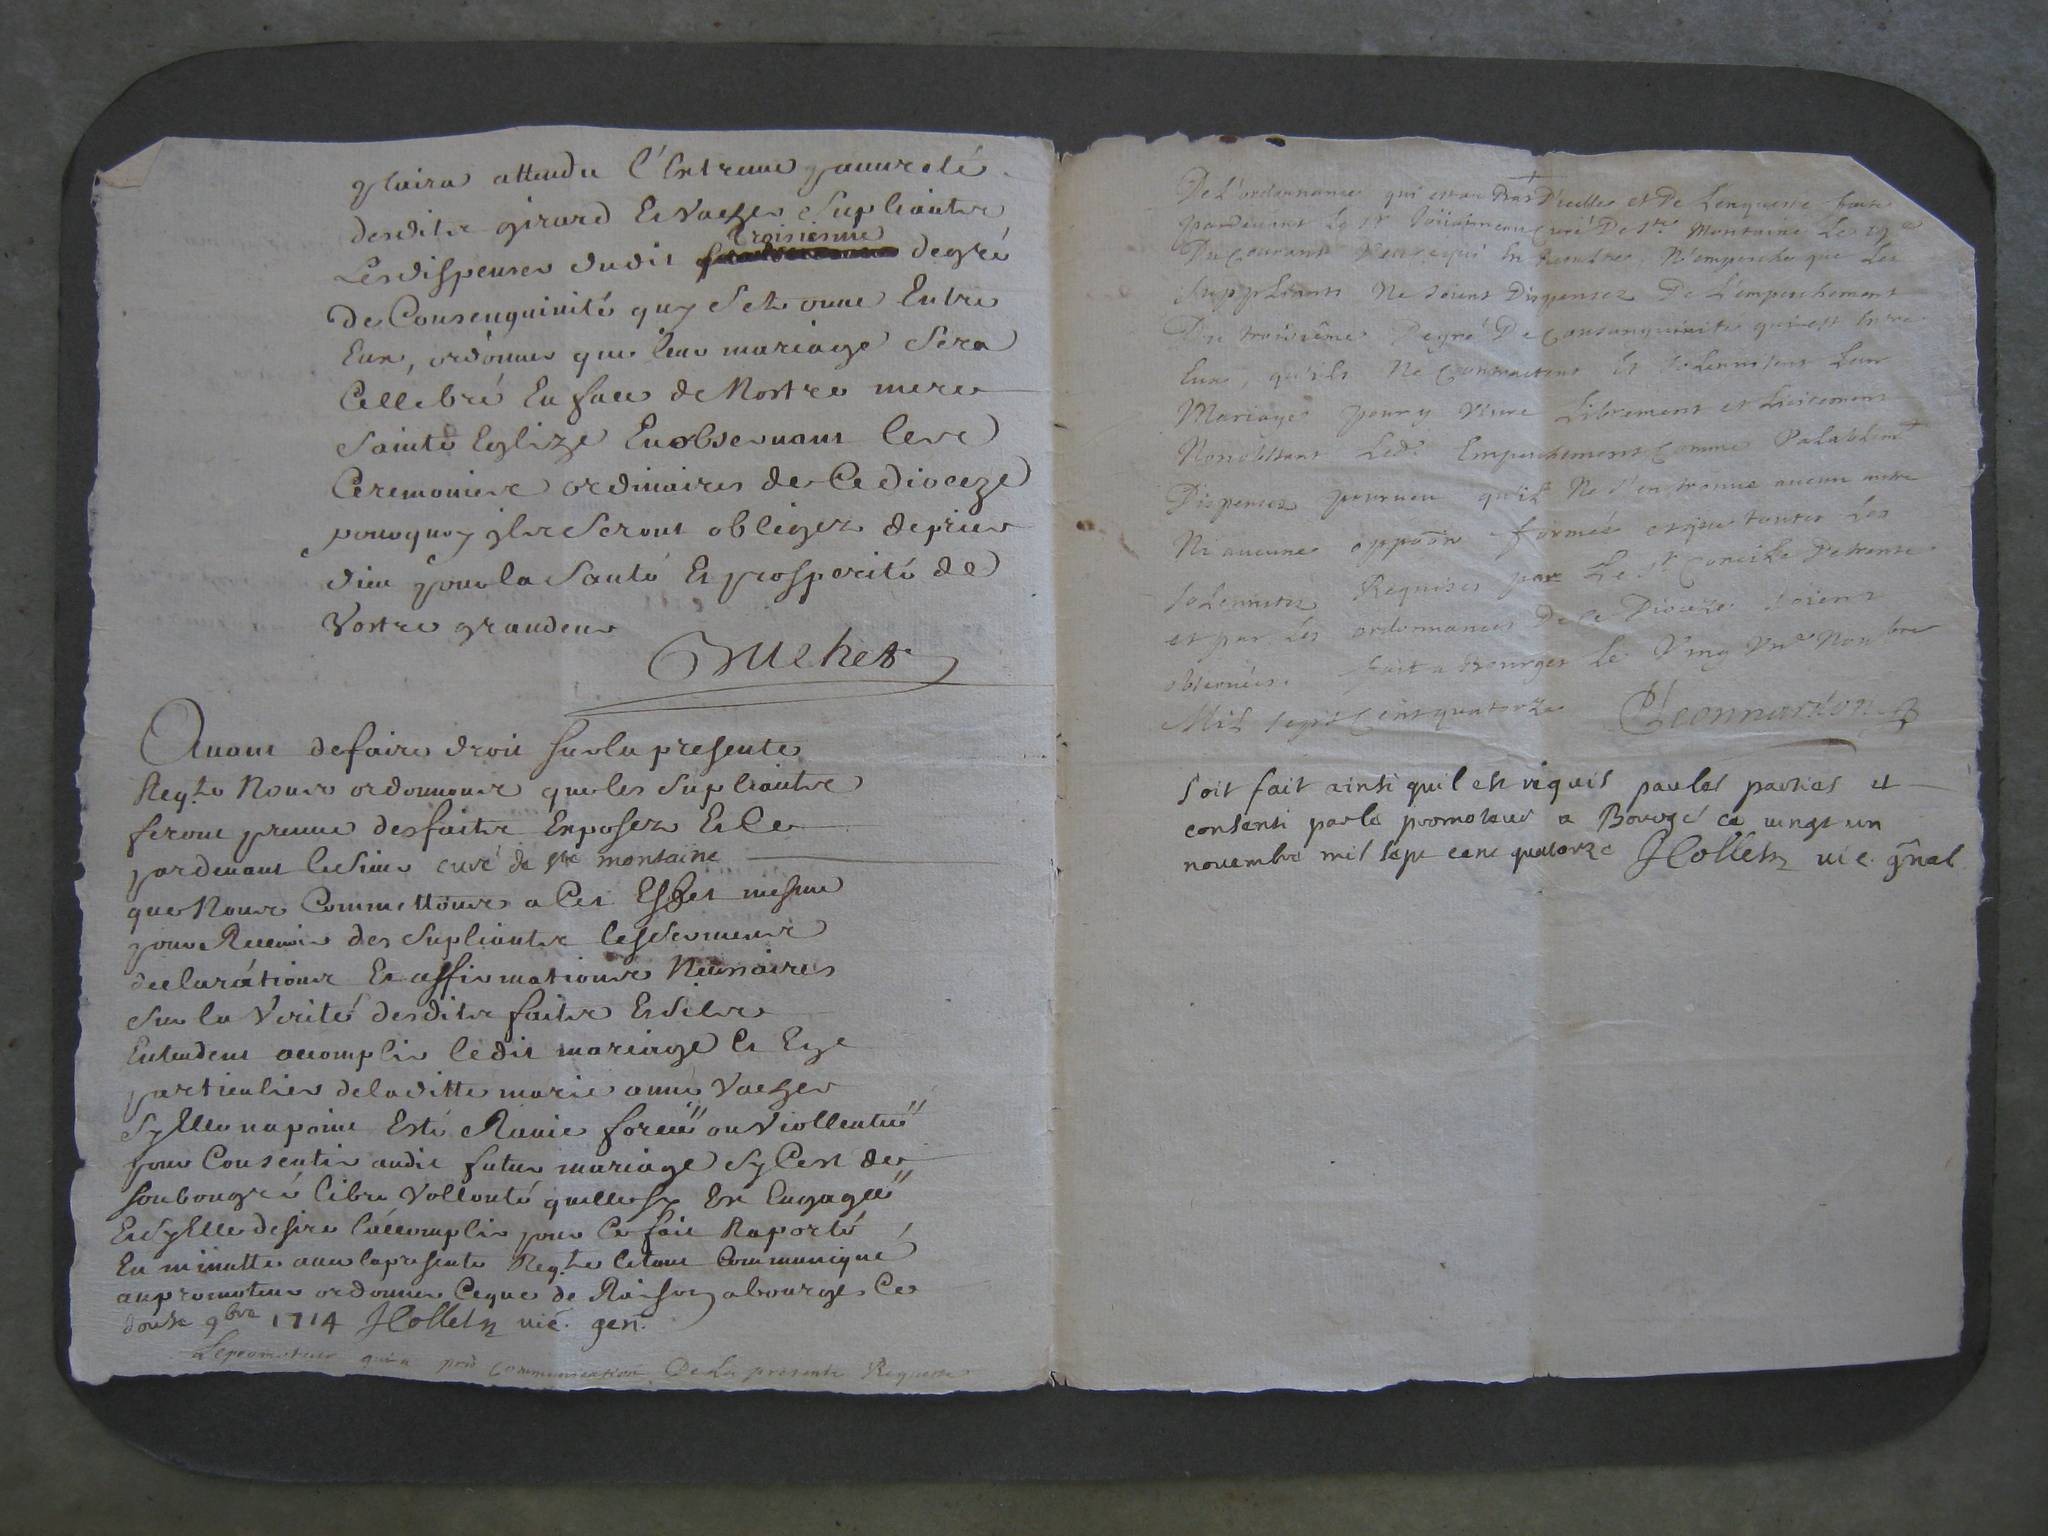 plaira attendu l'Extreme pauureté
desdits girard Et Vacher Supliants
Les dispenser dudit troisieme degré
de Consenguinité quy Se trouue Entre
Eux, ordonner que leur mariage Sera
Cellebré En face de Nostre mere
Sainte Eglize En observant les
Ceremonies ordinaires de Ce dioceze
pourquoy ils Seront obligez de prier
dieu pour la Santé Et prosperité de
Vostre grandeur
Auant de faire droit Sur la presente
Reqte Nous ordonnons que les Supliants
feront preuue des faits Exposez En Icelle
pardeuant le Sieur curé de Ste montaine
que Nous Commettons a Cet Effet mesme
pour Receuoir des Supliants les Serments
declarations Et affirmations Necessaires
Sur la Verité desdits faits Et Sils
Entendent accomplir ledit mariage Et En
particulier de laditte marie anne Vacher
Sy Elle na point Esté Rauie forcée ou Viollentée
pour Consentir audit futur mariage Sy Cest de
Son bon gré libre Vollonté quelle Sy Est Engagée
Et Sy Elle desire laccomplir pour Ce fait Raporté
En minutte auec la presente Reqte Estant Communiqué
au promoteur ordonner Ce que de Raison a bourges Ce
douze 9bre 1714 vic. gen.
Le promoteur qui a pris communication De La presente Requeste
De L'ordonnance qui est au bas D'icelle et De Lenqueste faite
pardeuant Le Sr Curé De Ste Montaine Le 19e
Du Courant N'empesche que Les
Suppliants Ne soient Dispensez De L'empeschement
Du troisième Degré De Consanguinité qui est Entre
Eux, qu'ils Ne Contractent Et Solennisent Leur
Mariage pour y Viure Librement et Licitement
Nonobstant Led. Empeschement Comme Valablemt
Dispensez pourueu qu'il Ne s'en trouue aucun autre
Ni aucune oppôôn formée et que toutes Les
solennitez Requises par Le St Concile De trente
et par Les ordonnances De ce Dioceze soient
obseruées. fait a bourges Le Vingt Vn Nouembre
Mil Sept Cent quatorze
soit fait ainsi quil est requis par les parties et
consenti par le promoteur a Bourge ce uingt un
novembre mil sept cent quatorze vic. gñal.